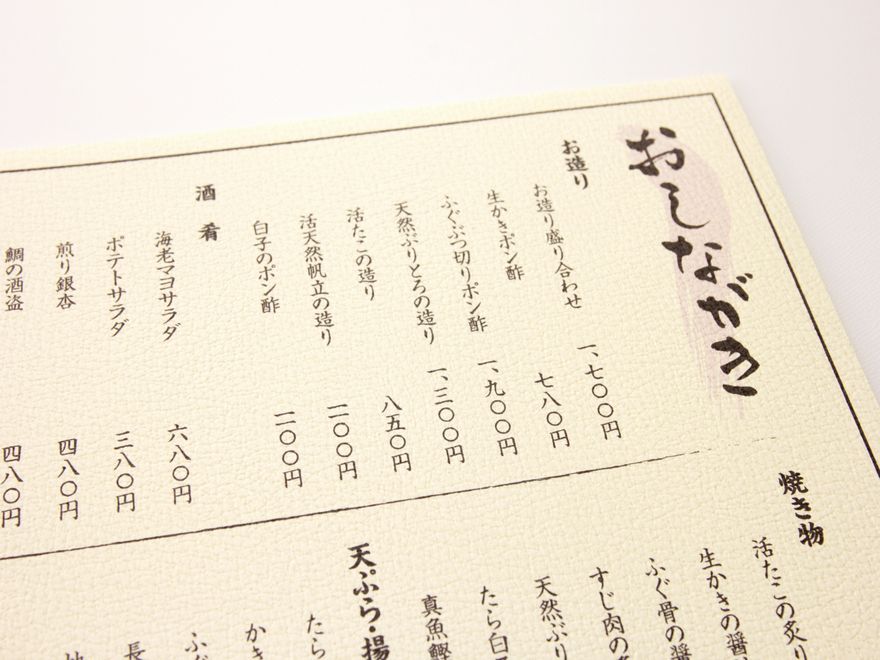 おしながき
お造り
お造り盛り合わせ 一、七〇〇円
生かきポン酢 七八〇円
ふぐぶつ切りポン酢 一、九〇〇円
天然ぶりとろの造り 一、三〇〇円
活たこの造り 八五〇円
活天然帆立の造り
白子のポン酢
酒肴
海老マヨサラダ 六八〇円
ポテトサラダ 三八〇円
煎り銀杏 四八〇円
鯛の酒盗 四八〇円
焼き物
活たこの炙り
生かきの醤
ふぐ骨の醤
すじ肉の
天然ぶり
たら白子
真魚鰹
天ぷら・揚
たら
かき
ふぐ
長